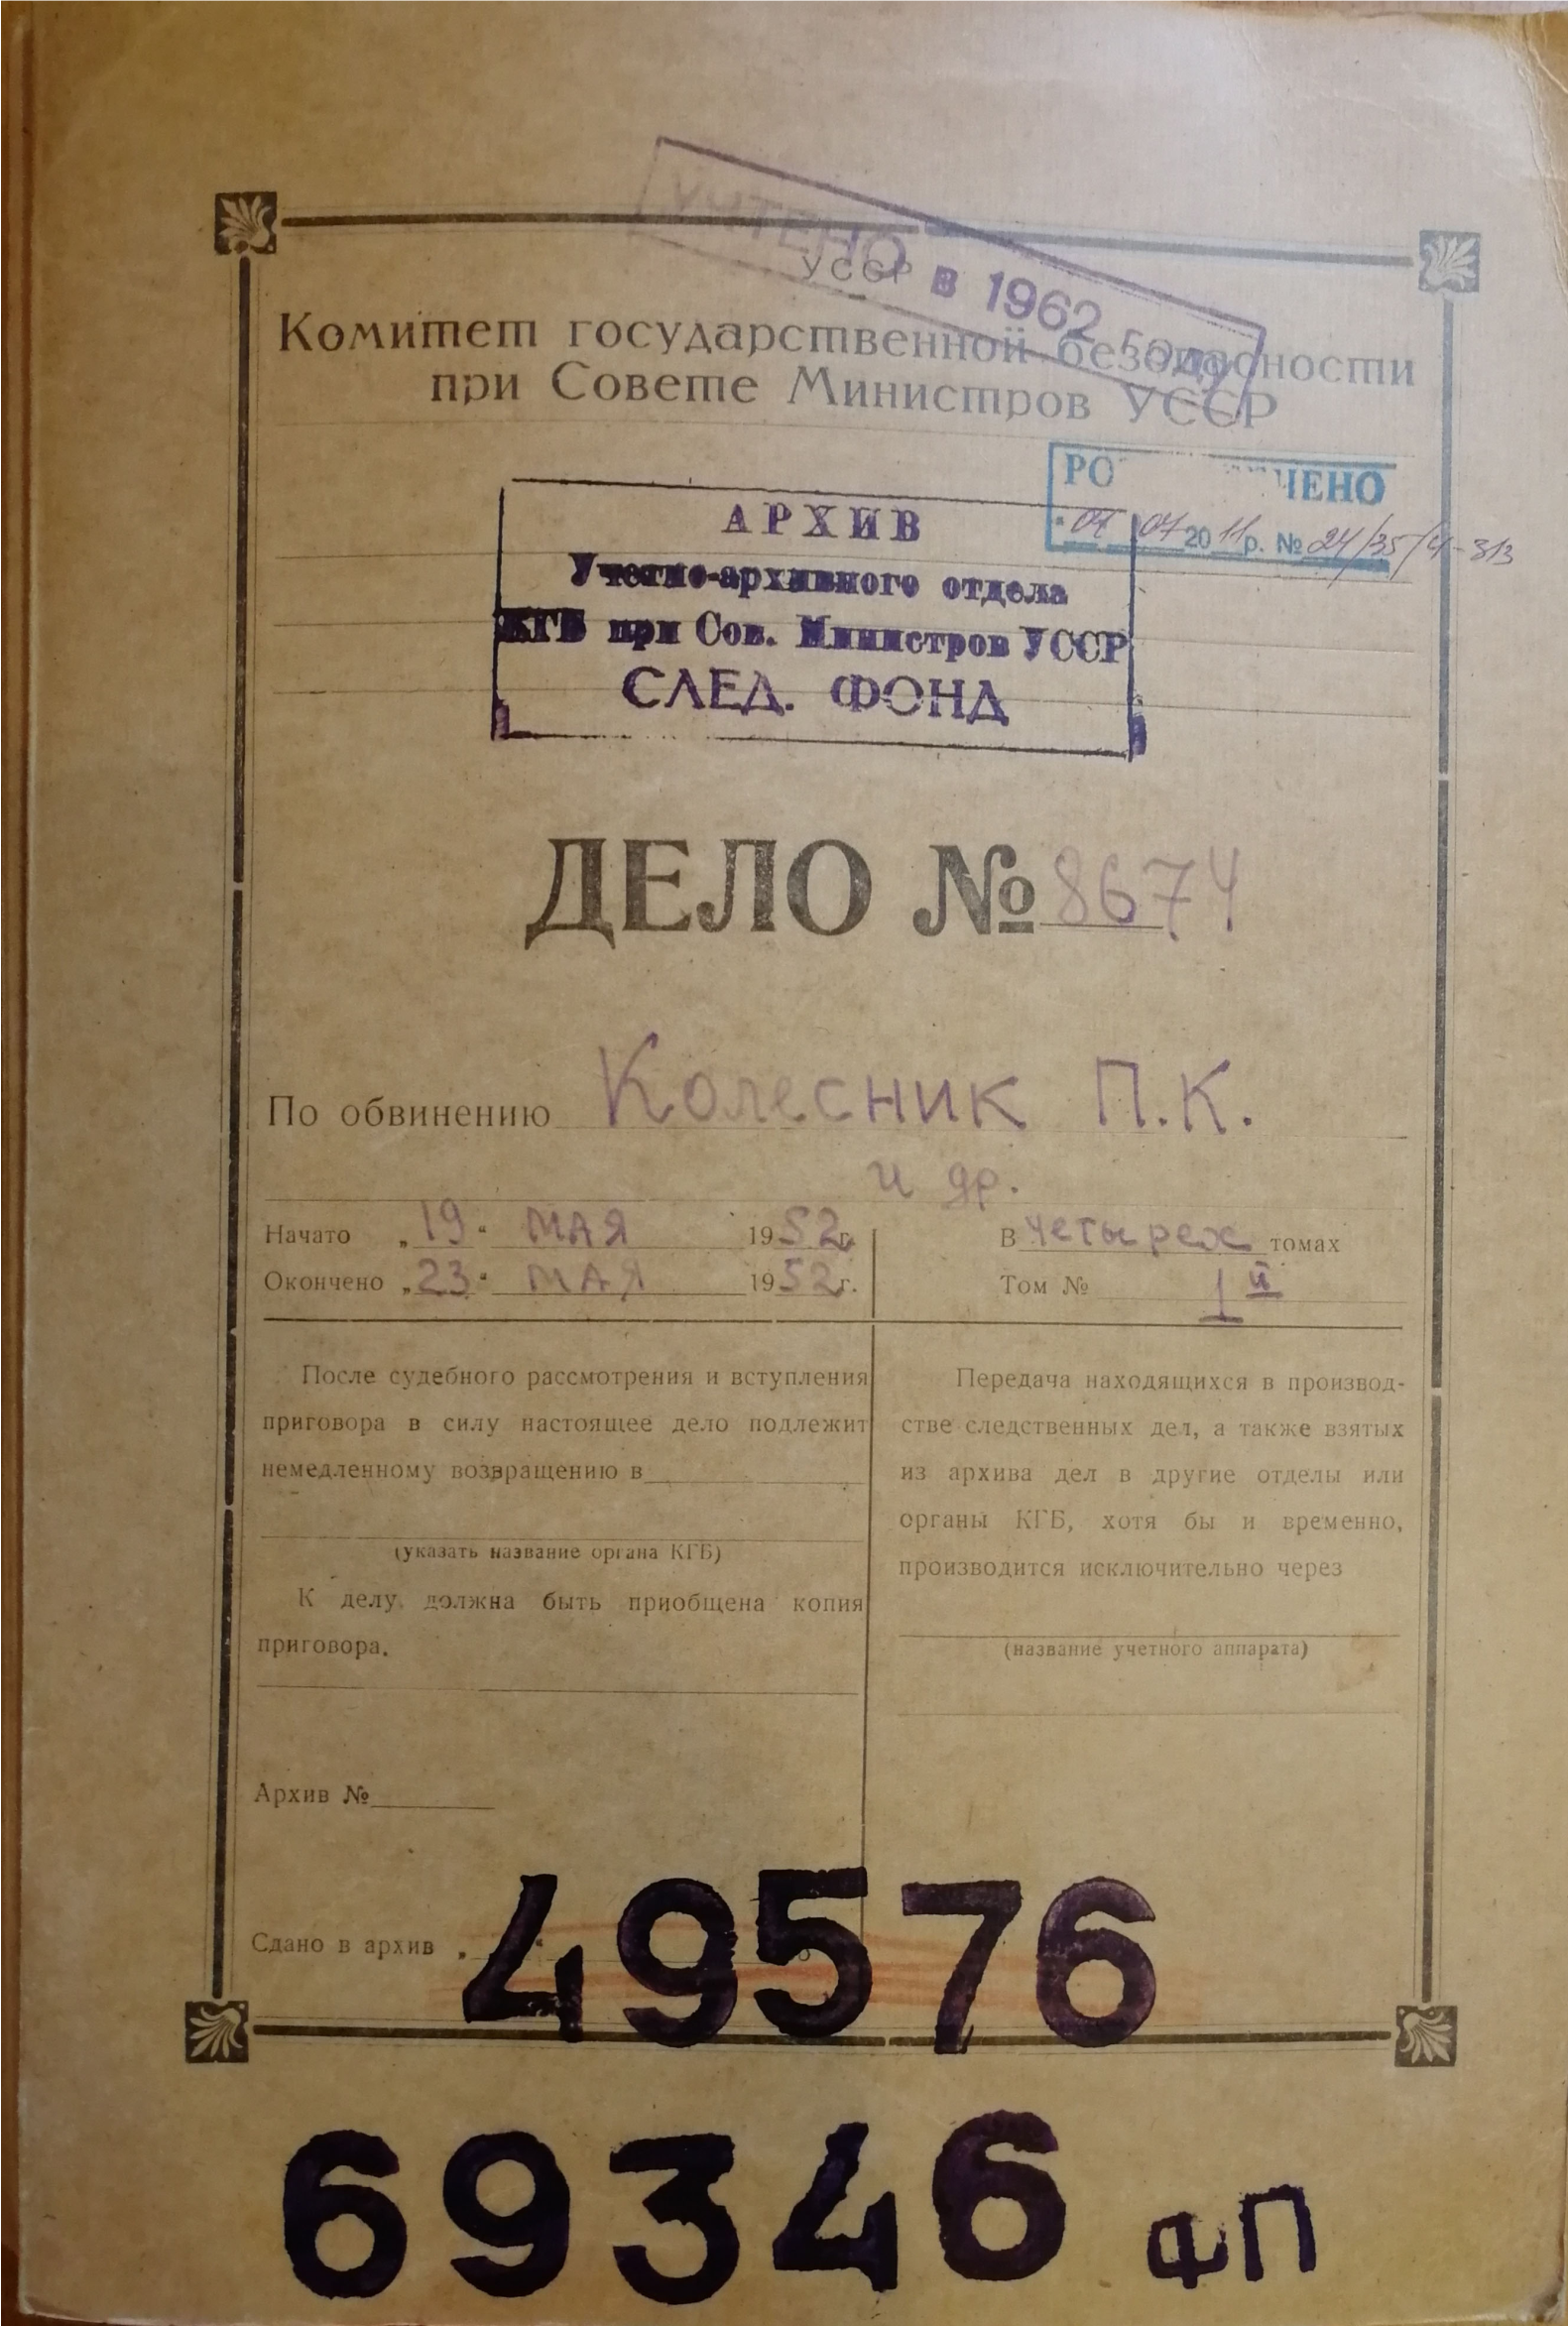 УЧТЕНО в 1962 году
УССР
Комитет государственной безопасности
при Совете Министров УССР
РО ЧЕНО
"07 07 2011р. № 24/35/4-313
АРХИВ
Учетно-архивного отдела
КГБ при Сов. Министров УССР
СЛЕД. ФОНД
ДЕЛО № 8674
По обвинению Колесник П.К.
и др.
Начато „19“ МАЯ 1952г.
Окончено „23“ МАЯ 1952г.
В четырех томах
Том № 1й
После судебного рассмотрения и вступления
приговора в силу настоящее дело подлежит
немедленному возвращению в
(указать название органа КГБ)
К делу должна быть приобщена копия
приговора.
Передача находящихся в производ-
стве следственных дел, а также взятых
из архива дел в другие отделы или
органы КГБ, хотя бы и временно,
производится исключительно через
(название учетного аппарата)
Архив №
Сдано в архив „ “
49576
69346 фП